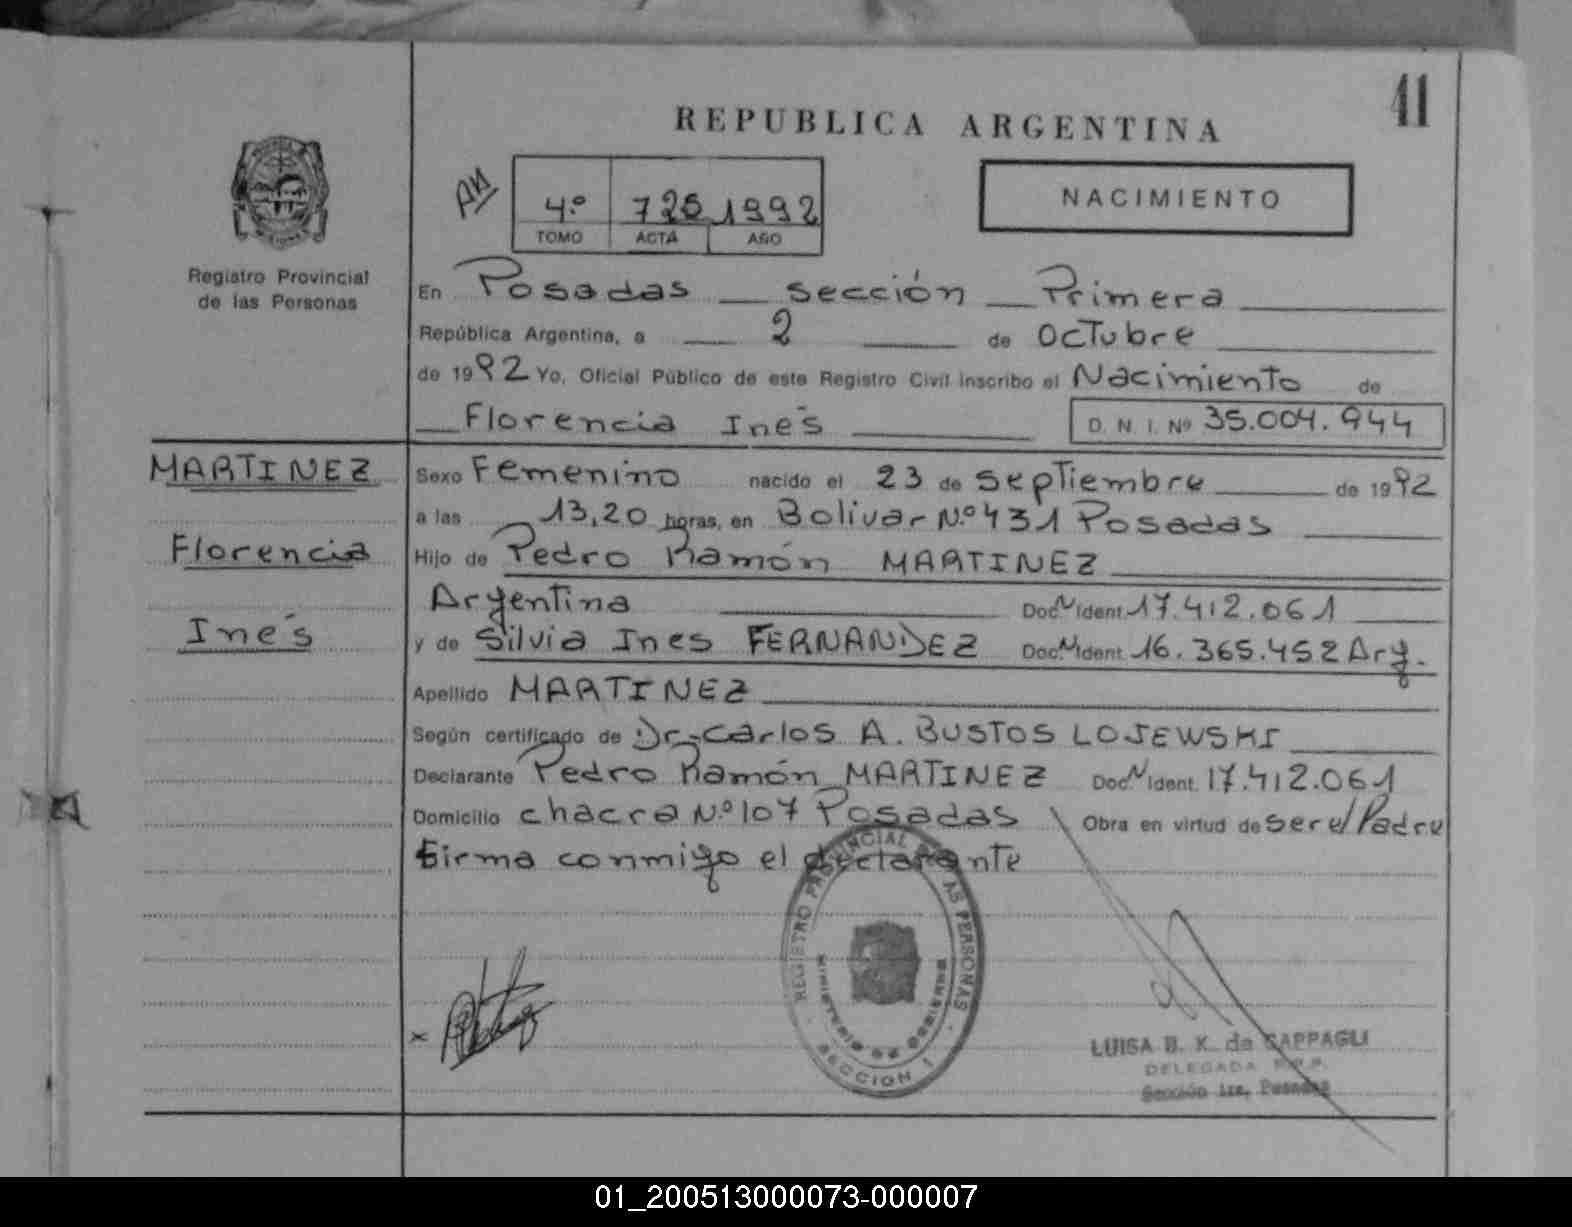 41
REPUBLICA ARGENTINA
4.º 726 1992
TOMO ACTA AÑO
NACIMIENTO
Registro Provincial
de las Personas
En Posadas sección Primera
República Argentina, a 2 de Octubre
de 1992 Yo, Oficial Público de este Registro Civil inscribo el Nacimiento de
Florencia Inés D. N. I. Nº 35.004.944
MARTINEZ
Florencia
Inés
Sexo Femenino nacido el 23 de Septiembre de 1992
a las 13,20 horas, en Bolivar N.º 431 Posadas
Hijo de Pedro Ramón MARTINEZ
Argentina Doc. N Ident. 17.412.061
y de Silvia Ines FERNANDEZ Doc. N Ident. 16.365.452 Arg.
Apellido MARTINEZ
Según certificado de Dr. Carlos A. BUSTOS LOJEWSKI
Declarante Pedro Ramón MARTINEZ Doc. N Ident. 17.412.061
Domicilio chacra N.º 107 Posadas Obra en virtud de ser el Padre
Firma conmigo el declarante
REGISTRO PROVINCIAL DE LAS PERSONAS
MINISTERIO DE GOBIERNO
SECCION 1
LUISA B. K. de CAPPAGLI
DELEGADA R.P.P.
Sección 1ra. Posadas
01_200513000073-000007